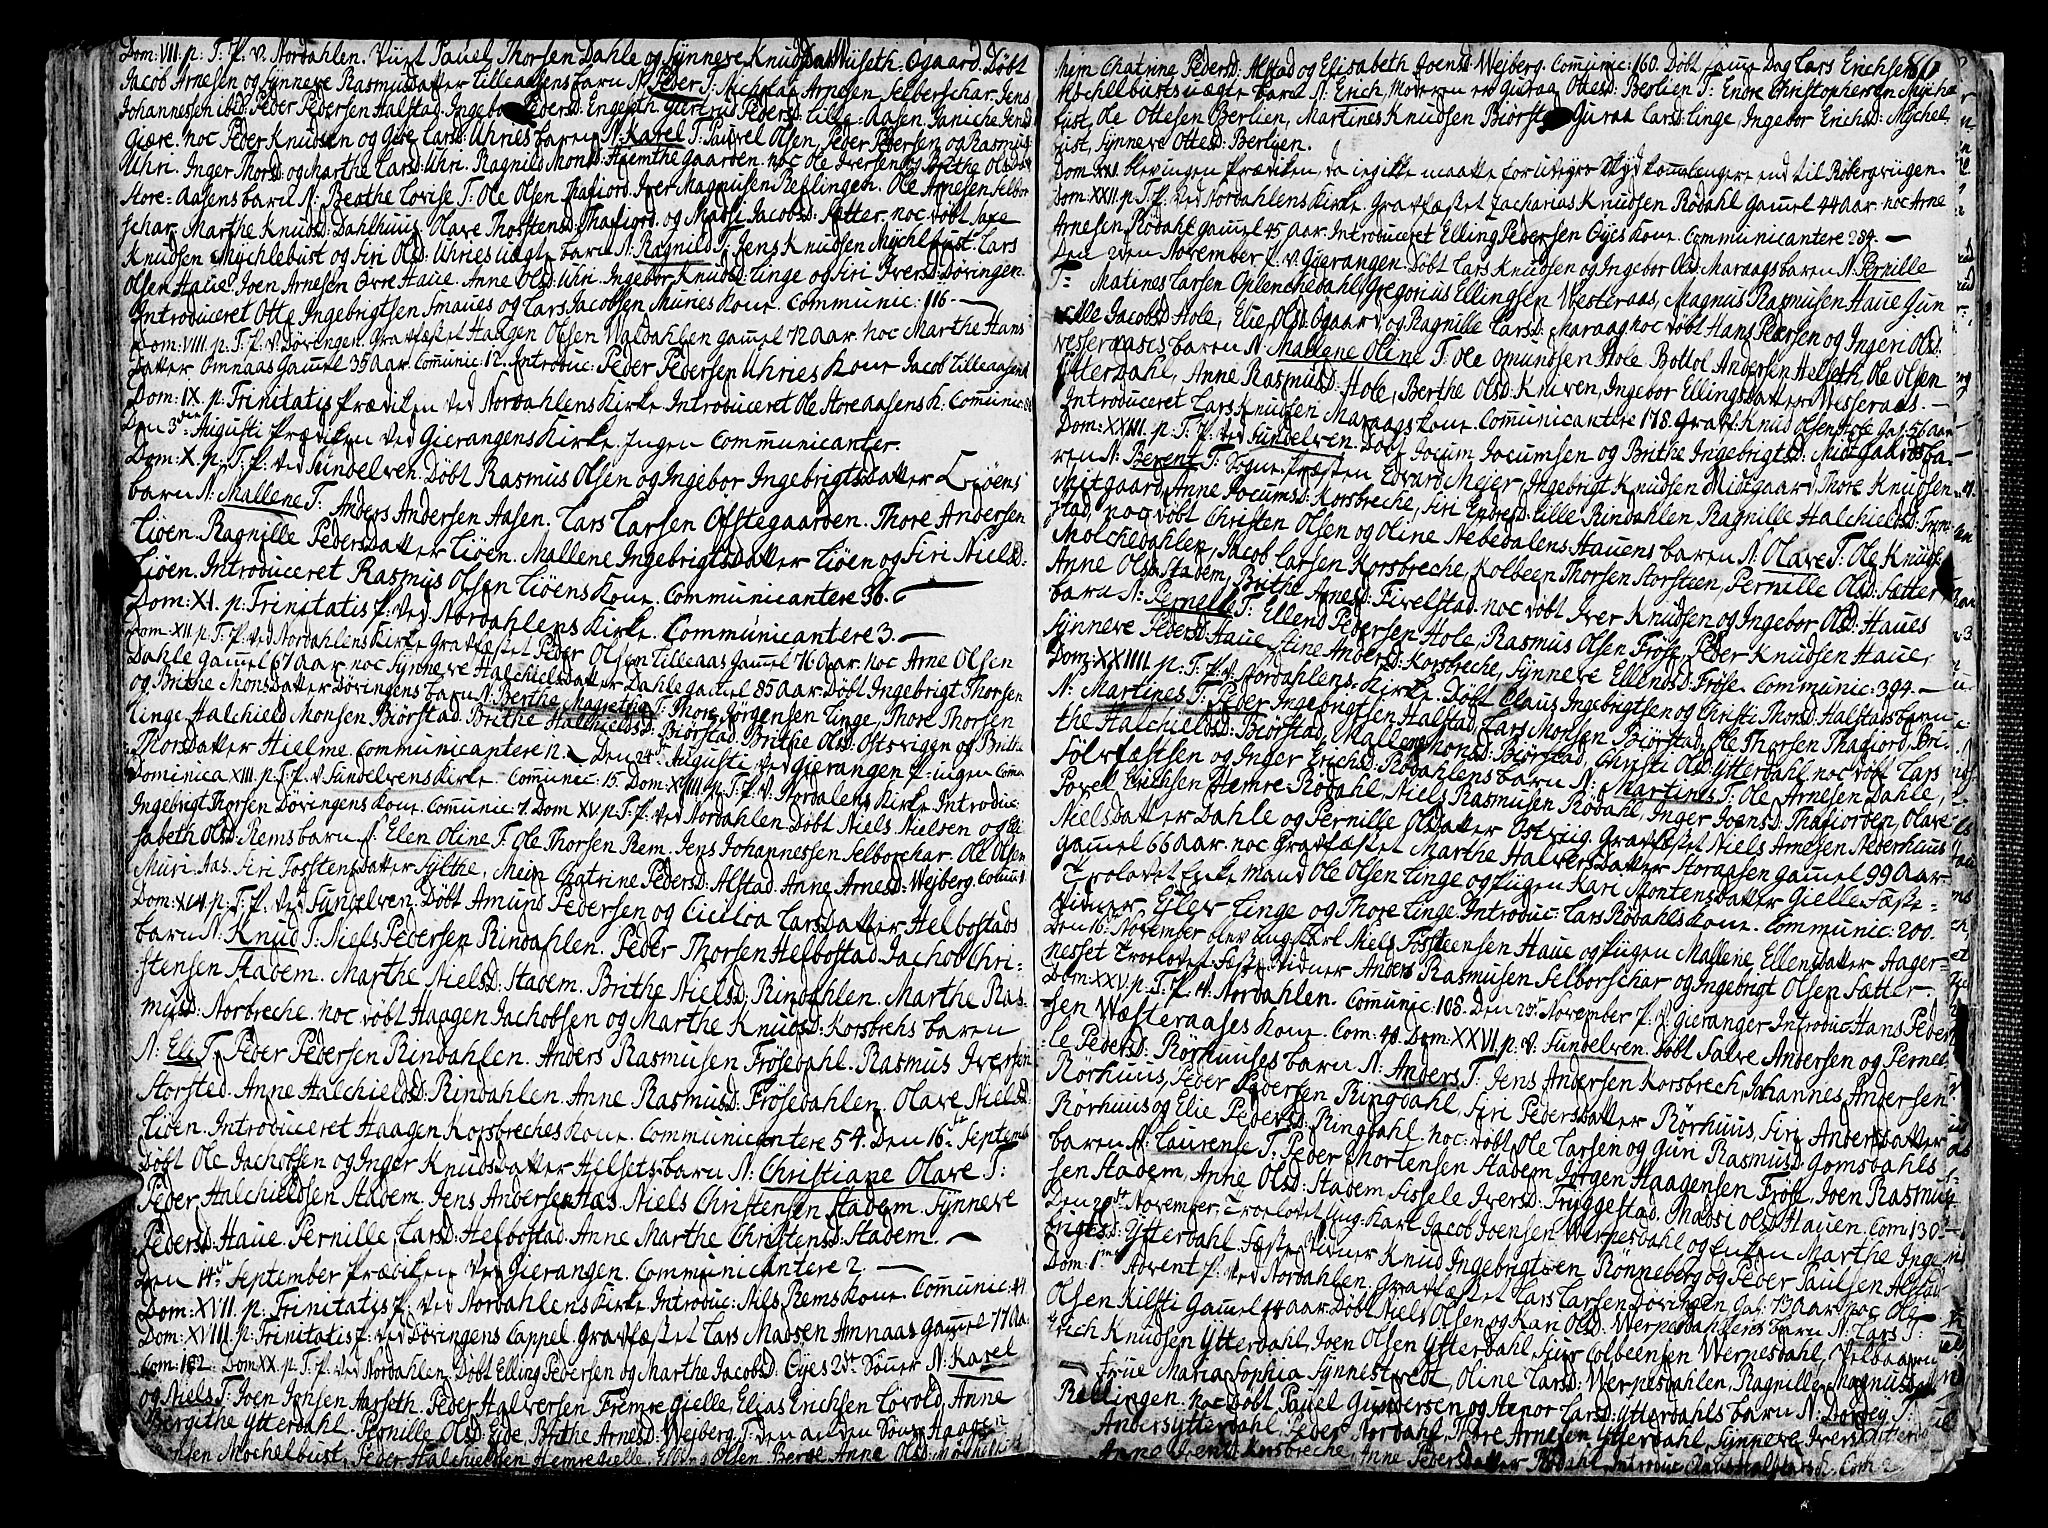 Dom: VIII. p. T. P. v. Nordahlen. Viet Pauel Thorsen Dahle og Synneve Knudsdat Museth. Ogaard. Døbt
Jacob Arnesen og Synneve Rasmusdatter Lilleaasens barn N: Peder T: Nicholai Arnesen Selberschar. Jens
Johannessen ibid: Peder Pedersen Halstad. Ingebor Pedersd: Engeseth Giertrud Pedersd: Lille-Aasen. Janiche Jensd
Giære. noc Peder Knudsen og Gide Larsd: Uhries barn N: Karel T: Pauvel Olsen, Peder Pedersen og Rasmus
Uhri. Inger Thorsd: og Marthe Larsd: Uhri. Ragnild Monsd: Heemthe gaarden. noc Ole Iversen og Brithe Olsdat
Store-Aasens barn N: Berthe Lovise T: Ole Olsen Thafiord. Iver Magnusen Reflingen. Ole Arnesen Selbor
schar. Marthe Knudsd: Dahlhuus. Olave Thorstensd: Thafiord. og Madsi Jacobsd: Sætter. noc døbt Saxe
Knudsen Mychlebust og Siri Olsd: Uhries uægte barn N: Ragnild T: Jens Knudsen Mychlbust. Lars
Olsen Haue. Joen Arnesen Øvre Haue. Anne Olsd: Uhri. Ingebor Knudsd: Linge og Siri Iversd: Døvingen.
Introduceret Otte Ingebrigtsen Smaues og Lars Jacobsen Munes Kone. Communic: 116.
Dom: VIII. p. T. P. v. Døvingen. Gravfæstet Haagen Olsen Waldahlen gamel 72 Aar. noc Marthe Hans
Datter Omnaas Gamel 35 Aar. Comunic: 12. Introduc: Peder Pedersen Uhries Kone Jacob Lilleaasens
Dom: IX. p. Trinitatis Prædiken Ved Nordahlens Kirke. Introduceret Ole Store Aasens K: Comunic:
Den 3den Augusti Prædiken Ved Gierangens Kirke. Ingen Communicanter.
Dom: X. p. T. P. Ved Sundelven. Døbt Rasmus Olsen og Ingebor Ingebrigtsdatter Liøens
barn N: Mallene T: Anders Andersen Aasen. Lars Larsen Ofstegaarden. Thore Andersen
Liøen. Ragnille Pedersdatter Liøen. Mallene Ingebrigtsdatter Liøen og Siri Nielsd:
Liøen. Introduceret Rasmus Olsen Liøens Kone. Communicantere 36.
Dom: XI. p: Trinitatis P. Ved Nordahlens Kirke. Communicantere 3.
Dom. XII. p. T. P. Ved Nordahlens Kirke Gravfæstet Peder Olsen Lilleaas Gamel 76 Aar. noc Arne Olsen
Dahle Gamel 67 Aar. noc Synneve Halchieldsdatter Dahle gamel 85 Aar. Døbt Ingebrigt Thorsen
og Brithe Monsdatter Døvingens barn N: Berthe Magretha T: Thore Jørgensen Linge, Thore Thorsen
Linge. Halchield Monsen Biørstad. Brithe Halchieldsd: Biørstad. Brithe Olsd: Ostsvigen og Brithe
Thorsdatter Hielme. Communicantere 12. Den 24de Augusti Ved Gierangen P. ingen Comu
Dominica XIII. p. T. P. v. Sundelvens Kirke. Comunic: 15. Dom XIIII. p. T. P. V. Nordalens Kirke Introduc:
Ingebrigt Thorsen Døvingens Kone. Comunic: 7. Dom XV. p. T. P. Ved Nordahlen Døbt Niels Nielsen og Eli
sabeth Olsd: Rems barn N: Elen Oline T: Ole Thorsen Rem. Jens Johannessen Selborchar. Ole Olsen
Muri Aas. Siri Tosstensdatter Sylthe, Mein Chatrine Pedersd: Alstad. Anne Arnesd: Wejberg. Comu
Dom: XVI. p: T. P. Ved Sundelven. Døbt Amund Pedersen og Cicilia Larsdatter Helbostads
barn N: Knud T: Niels Pedersen Rindahlen. Peder Thorsen Helbostad. Jachob Chri-
stensen Stadem. Marthe Nielsd: Stadem. Brithe Nielsd: Rindahlen. Marthe Ras-
musd: Norbreche. noc døbt Haagen Jachobsen og Marthe Knudsd: Korsbrechs barn
N: Eli T: Peder Pedersen Rindahlen. Anders Rasmusen Frösedahl. Rasmus Iversen
Storsted. Anne Halchieldsd: Rindahlen. Anne Rasmusd: Frösedahlen. Olave Nielsd
Liöen. Introduceret Haagen Korsbreches Kone. Communicantere 54. Den 16de Septemb
Døbt Ole Jachobsen og Inger Knudsdatter Helsets barn N: Christiane Olave T:
Peder Halchieldsen Stadem. Jens Andersen Aas. Niels Christensen Stadem. Synneve
Pedersd: Haue. Pernille Larsd: Helbostad. Anne Marthe Christensd: Stadem.
Den 14de September Prædiken Ved Gierangen. Communicantere 2.
Dom: XVII. p. Trinitatis P. Ved Nordahlens Kirke Introduc: Niels Rems Kone. Comunic: 41
Dom: XVIII. p. Trinitatis P. Ved Døvingens Cappel Gravfæstet Lars Madsen Amnaas gamel 77 Aar
Com: 182. Dom XX. p. T. P. Ved Nordahlen. Døbt Elling Pedersen og Marthe Jacobsd: Øyes 2de Sønner N: Karel
og Niels T: Joen Johsen Aarseth. Peder Halversen Fremre Gielle, Elias Erichsen Lovold, Anne
Bergithe Ytterdahl. Pernille Olsd: Eide, Brithe Arnesd: Wejberg. T: den anden Søns Haagen
Mochelbust, Peder Halchieldsen Hemre Gielle, Elling Olsen Berge, Anne Olsd:
hejm Chatrine Pedersd: Alstad og Elisabeth Joensd: Wejberg. Comunic: 160. Døbt samme Dag Lars Erichsen 80
Mochelbusts uægte barn N: Erich, moderen er Guroe Ottesd: Berlien T: Endre Christophersen Mychle
bust, Ole Ottesen Berlien, Martines Knudsen Biørstad Guraa Larsd: Linge, Ingebor Erichsd: Mychel
bust, Synneve Ottesd: Berlien.
Dom XXI. blev ingen Prædiken, da jeg ikke maatte for udygt Skyd komme lengere end til Robergvugen.
Dom. XXII. p. T. P. Ved Nordahlens Kirke. Gravfæstet Zacharias Knudsen Rodahl Gamel 44 Aar. noc Arne
Arnesen Rodahl gamel 45 Aar. Introduceret Elling Pedersen Øyes Kone. Communicantere 284.
Den 2den November P. v. Gierangen. Døbt Lars Knudsen og Ingebor Olsd: Maraags baren N: Pernille
T: Matines Larsen Oplenchedahl, Gregorius Ellingsen Westeraas, Magnus Rasmusen Haue, Gun
ille Jacobsd Hole, Elie Olsd: Ogaard, og Ragnille Larsd: Maraag. noc døbt Hans Pedersen og Ingeri Olsd
Vesseraases baren N: Mallene Oline T: Ole Omundsen Hole, Bottol Andersen Helseth, Ole Olsen
Ytterdahl, Anne Rasmusd: Hole, Berthe Olsd: Kniven, Ingebor Ellingsdatter Wesseraas.
Introduceret Lars Knudsen Maraags Kone. Communicantere 178. Gravf: Knud Olsen Hole Gal: 56 Aar
Dom: XXIII. p. T. P. Ved Sundelven. Døbt Jocum Jocumsen og Brithe Ingebrigtsd: Midtgaards ba-
ren N: Berent T: Sogne-Præsten Edvard Mejer, Ingebrigt Knudsen Midtgaard, Thore Knudsen
Mitgaard, Anne Jocumsd: Korsbreche, Siri Endresd: Lille Rindahlen, Ragnille Halchieldsd: Trem-
stad, noc døbt Christen Olsen og Oline Nebedalens Hauens baren N: Olave T: Ole Knuds:
Molchedahlen, Jacob Larsen Korsbreche, Kolbeen Thorsen Storsteen, Pernille Olsd: Sætter
Anne Olsd: Stadem, Brithe Arnesd: Fivelstad. noc døbt Iver Knudsen og Ingebor Olsd: Haues
barn N: Pernelle T: Ellend Pedersen Hole, Rasmus Olsen Fröse, Peder Knudsen Haue,
Synneve Pedersd: Haue, Stine Andersd: Korsbreche, Synneve Ellendsd: Fröse. Communic: 394.
Dom: XXIIII. p. T. P. v. Nordahlens Kirke. Døbt Claus Ingebrigtsen og Christi Thorsd: Halstads barn
N: Martines T: Peder Ingebrigtsen Halstad, Lars Monsen Biørstad, Ole Thorsen Thafiord, Bri-
the Halchieldsd: Biørstad, Mallene Monsd: Biørstad, Christi Olsd: Ytterdahl noc døbt Lars
Sølvfastsen og Inger Erichsd: Rødahlens barn N: Martines T: Ole Arnesen Dahle,
Povel Erichsen Hæmre Rødahl, Niels Rasmusen Rødahl, Inger Joensd: Thafiorden, Olave
Nielsdatter Dahle og Pernille Olsdatter Ostviig. Gravfæstet Niels Arnesen Nederhuus
Gamel 66 Aar. noc Gravfæstet Marthe Halversdatter Storaasen gamel 99 Aar
Trolovet Enke mand Ole Olsen Linge og Pigen Kari Montensdatter Gielle Fæste-
Vidner Ejlev Linge og Thore Linge. Introduc: Lars Rødahls Kone. Communic: 200.
Den 16de November blev ung Karl Niels Tossteensen Haue og Pigen Mallene Ellensdatter Aager-
nesset Trolovet. Fæste Vidner Anders Rasmusen Selborschar og Ingebrigt Olsen Sætter.
Dom: XXV. p. T. P. v. Nordahlen. Comunic: 105. Den 25de November P. v. Gieranger Introduc: Hans Peder-
sen Wæsteraases Kone. Com: 40. Dom: XXVI. p. v. Sundelven. Døbt Salve Andersen og Pernel-
le Pedersd: Rørhuuses barn N: Anders T: Jens Andersen Korsbrech, Johannes Andersen
Rørhuus, Peder Pedersen Ringdahl, Siri Pedersdatter Rørhuus, Siri Andersdatter
Rørhuus og Elie Pedersd: Ringdahl. noc: døbt Ole Larsen og Gun Rasmusd: Gomsdahls
baren N: Laurense T: Peder Mortensen Stadem, Jørgen Haagensen Fröse, Joen Rasmus-
sen Stadem, Anne Olsd: Stadem, Sissele Iversd: Truggestad, Madsi Olsd Hauen. Com: 130.
Den 29de November. Troelovet Ung-Karl Jacob Joensen Werpesdahl og Enken Marthe Inge-
brigtsd: Ytterdahl. Fæste Vidner Knud Ingebrigtsen Rönneberg og Peder Paulsen Alstad
Dom: 1ma Advent P. Ved Nordahlen. Gravfæstet Lars Larsen Døvingen Gal: 73 Aar, noc Ole
Olsen Kilsti Gamel 44 Aar. Døbt Niels Olsen og Kari Olsd: Werpesdahlens barn N: Lars T:
Erich Knudsen Ytterdahl, Joen Olsen Ytterdahl, Siur Colbeensen Werpesdahl, Velbaaren
Frue Maria Sophia Synnestvedt, Oline Larsd: Werpesdahlen, Ragnille Magnusd
Rellingen. noc Døbt Pauel Gundersen og Aenor Larsd: Ytterdahls barn N: Dorvey T:
Anders Ytterdahl, Peder Nordahl, Thore Arnesen Ytterdahl, Synneve Iversd: Ytterd
Anne Jensd: Korsbreche, Anne Pedersdatter Rødahl, Introduc: Claus Halstads K: Com: 2